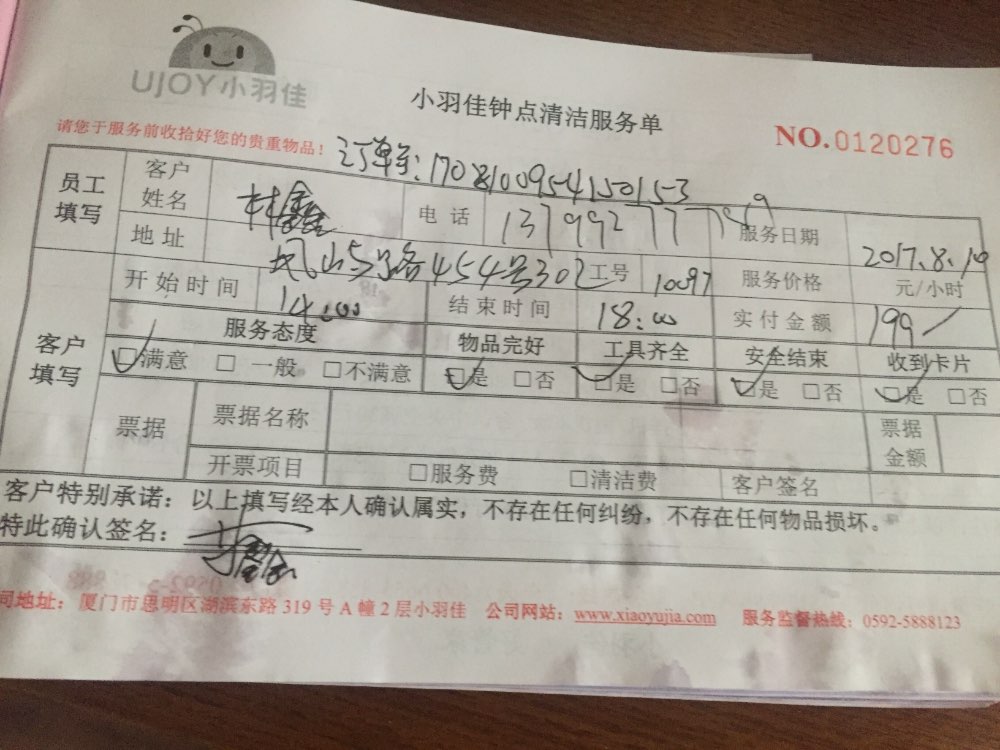 UJOY小羽佳
小羽佳钟点清洁服务单
NO.0120276
请您于服务前收拾好您的贵重物品！
订单号：1708100954150153
员工填写 客户姓名 林鑫鑫 电话 服务日期 2017.8.10
地址 454号302 工号 10097 服务价格 元/小时
客户填写 开始时间 14:00 结束时间 18:00 实付金额 199
服务态度 物品完好 工具齐全 安全结束 收到卡片
☑满意 □一般 □不满意 ☑是 □否 ☑是 □否 ☑是 □否 ☑是 □否
票据 票据名称 票据金额
开票项目 □服务费 □清洁费 客户签名
客户特别承诺：以上填写经本人确认属实，不存在任何纠纷，不存在任何物品损坏。
特此确认签名：林鑫鑫
司地址：厦门市思明区湖滨东路 319 号 A 幢 2 层小羽佳 公司网站：www.xiaoyujia.com 服务监督热线：0592-5888123